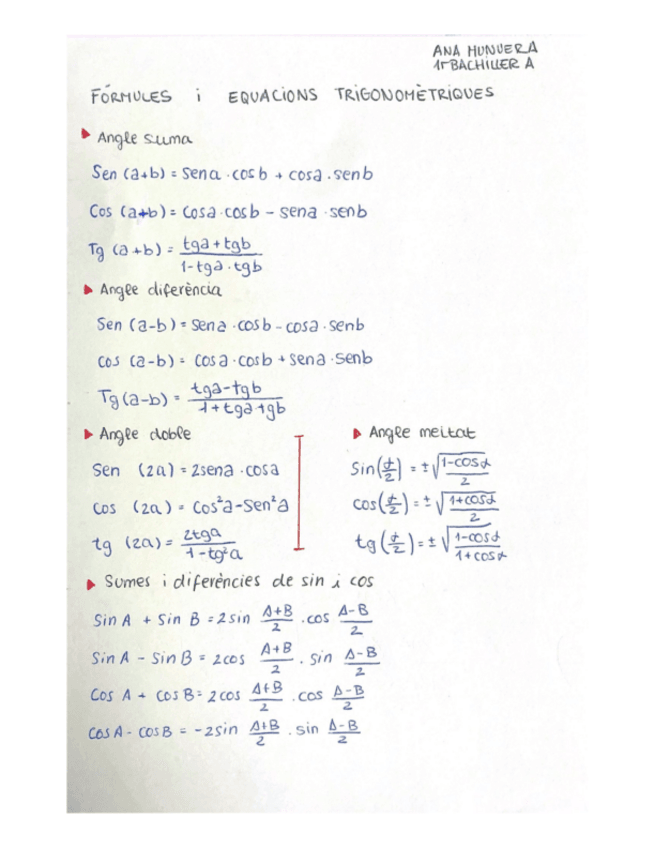 ANA MUNUERA
1r BACHILLER A
FÓRMULES i EQUACIONS TRIGONOMÈTRIQUES
Angle suma
Sen (a+b) = sena · cosb + cosa · senb
Cos (a+b) = cosa · cosb - sena · senb
Tg (a+b) = (tga + tgb) / (1 - tga · tgb)
Angle diferència
Sen (a-b) = sena · cosb - cosa · senb
cos (a-b) = cosa · cosb + sena · senb
Tg (a-b) = (tga - tgb) / (1 + tga · tgb)
Angle doble
Sen (2a) = 2sena · cosa
Cos (2a) = Cos²a - Sen²a
tg (2a) = 2tga / (1 - tg²a)
Angle meitat
Sin(α/2) = ± √((1-cosα)/2)
cos(α/2) = ± √((1+cosα)/2)
tg(α/2) = ± √((1-cosα)/(1+cosα))
Sumes i diferències de sin i cos
Sin A + Sin B = 2sin (A+B)/2 · cos (A-B)/2
Sin A - Sin B = 2cos (A+B)/2 · sin (A-B)/2
Cos A + cos B = 2cos (A+B)/2 · cos (A-B)/2
Cos A - cos B = -2sin (A+B)/2 · sin (A-B)/2